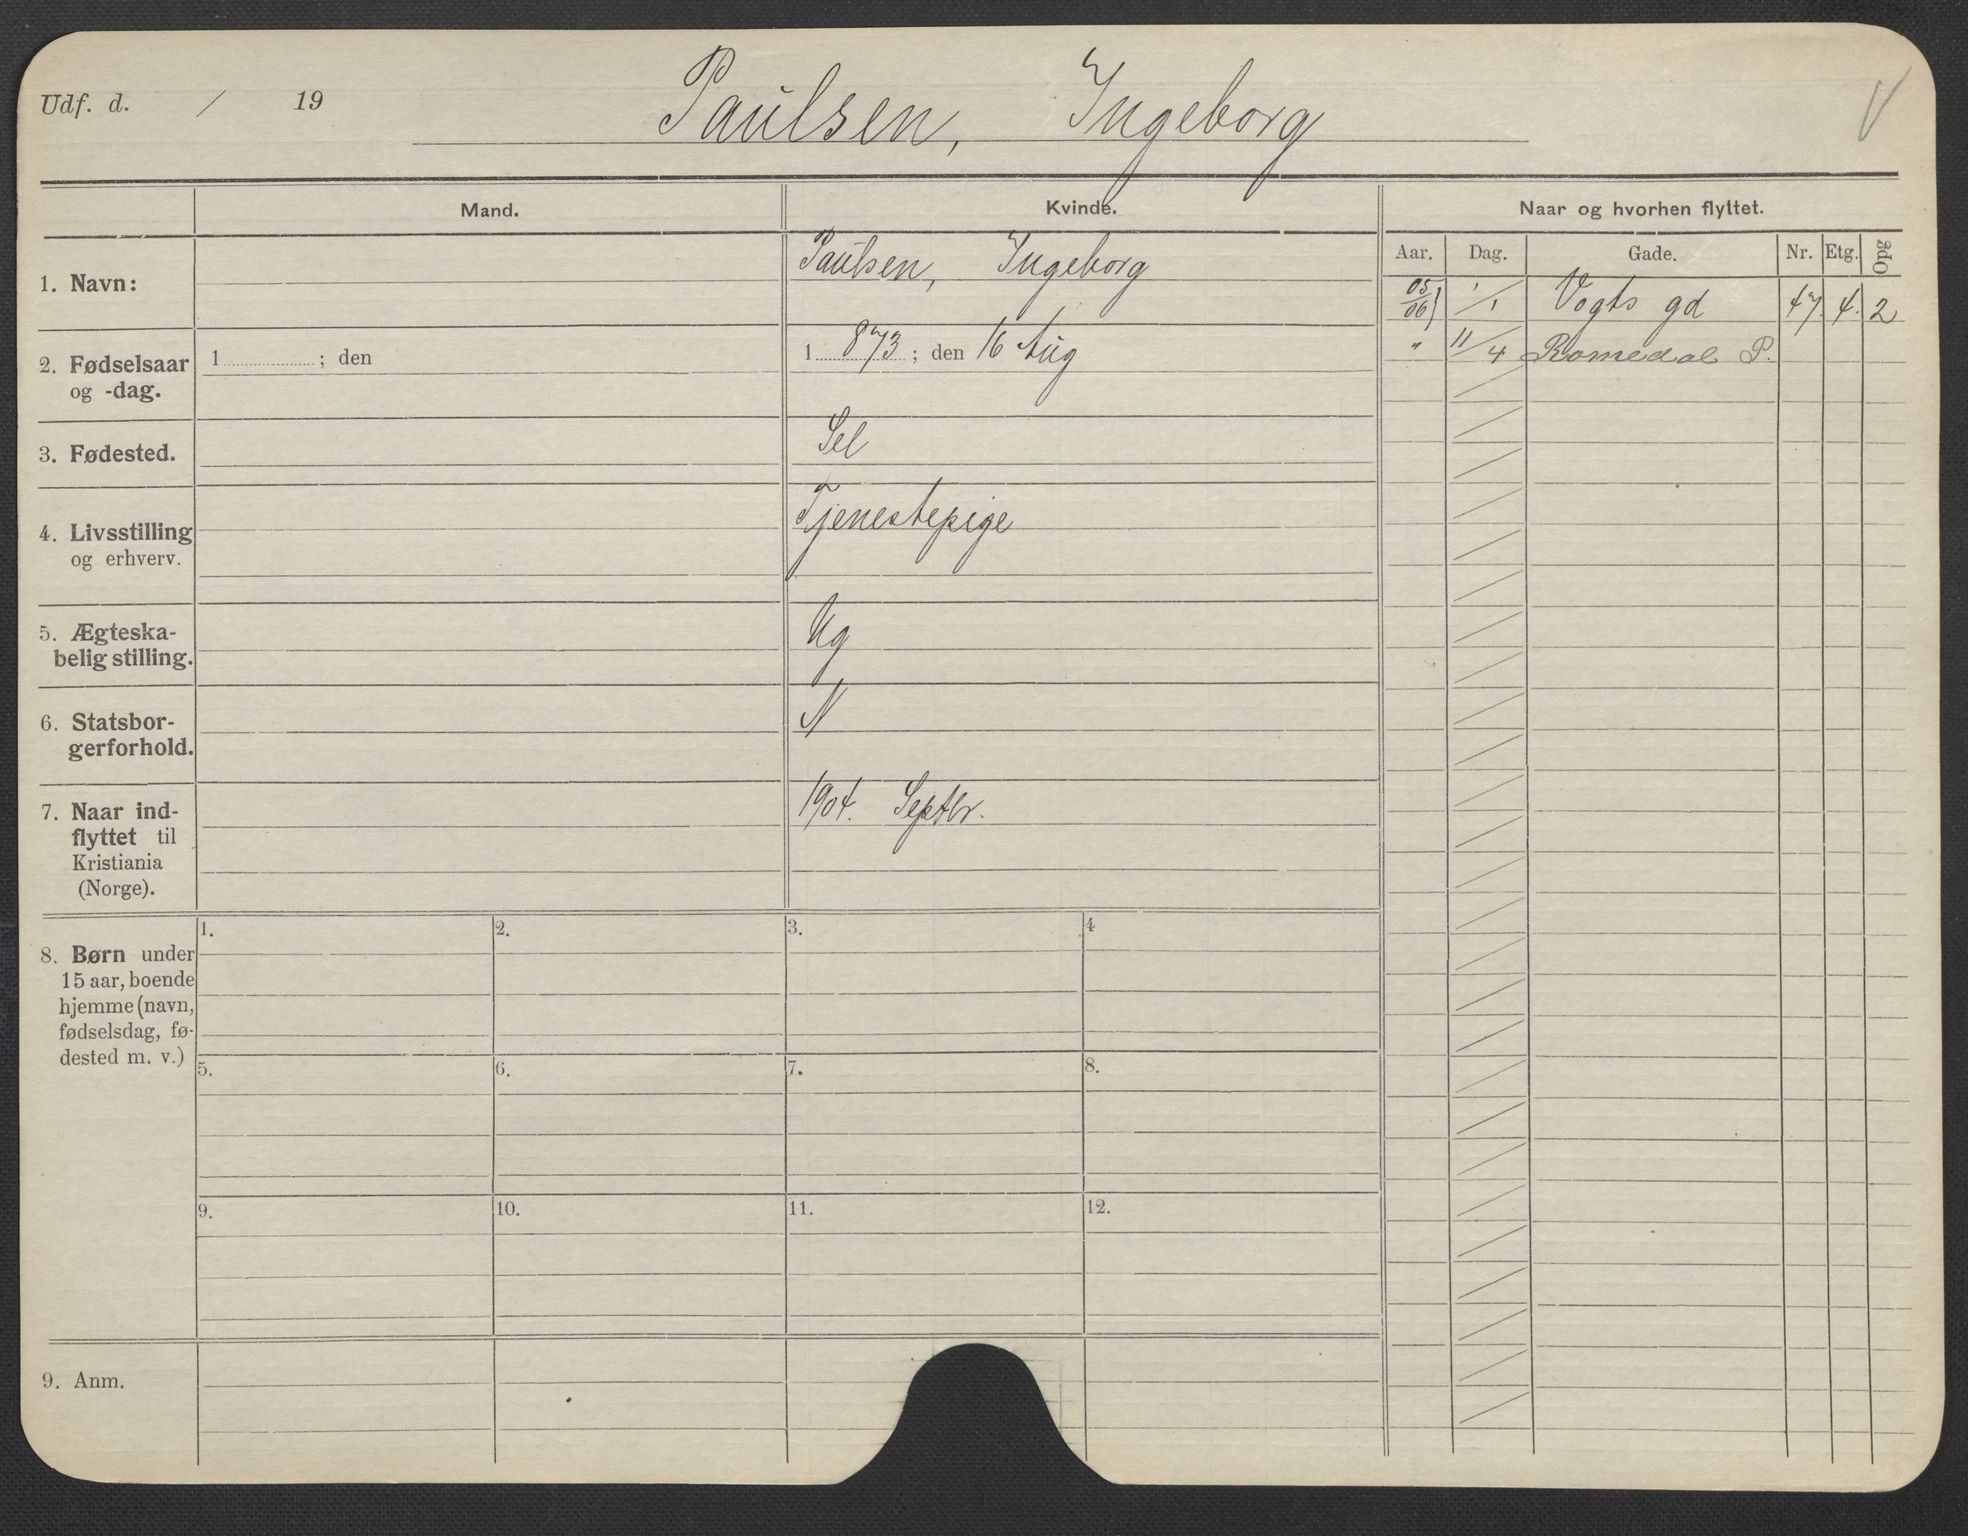 Udf. d. / 19
Paulsen, Ingeborg
V
Mand.
Kvinde.
Naar og hvorhen flyttet.
Aar. Dag. Gade. Nr. Etg. Opg
05/06} 1/1 Vogts gd 47. 4. 2
" 11/4 Romedal P.
1. Navn:
Paulsen, Ingeborg
2. Fødselsaar
og -dag.
1 ; den
1 873 ; den 16 Aug
3. Fødested.
Sel
4. Livsstilling
og erhverv.
Tjenestepige
5. Ægteska-
belig stilling.
Ug
6. Statsbor-
gerforhold.
N
7. Naar ind-
flyttet til
Kristiania
(Norge).
1904. Septbr.
8. Børn under
15 aar, boende
hjemme (navn,
fødselsdag, fø-
dested m. v.)
1. 2. 3. 4
5. 6. 7. 8.
9. 10. 11. 12.
9. Anm.